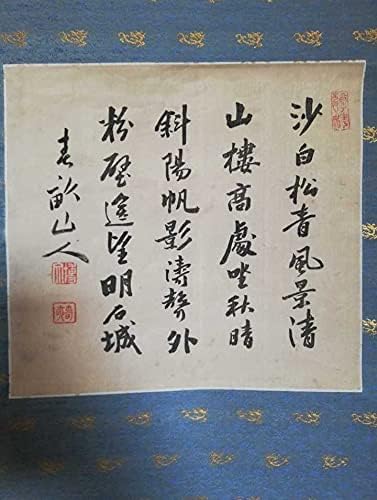 沙白松青風景清
山樓高處坐秋晴
斜陽帆影濤聲外
粉壁遙望明石城
春畝山人